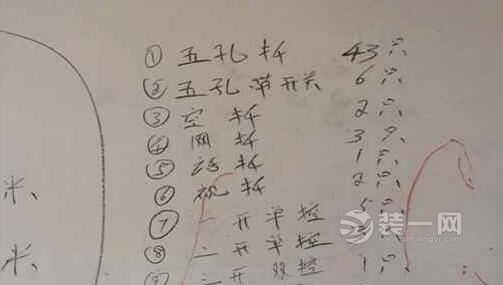 ① 五孔插 43只
② 五孔带开关 6只
③ 空插 2只
④ 网插 3只
⑤ 话插 1只
⑥ 视插 2只
⑦ 一开单控 5只
⑧ 二开单控 3只
⑨ 二开双控 1只
米、
米、
装一网
www.zhuangyi.com